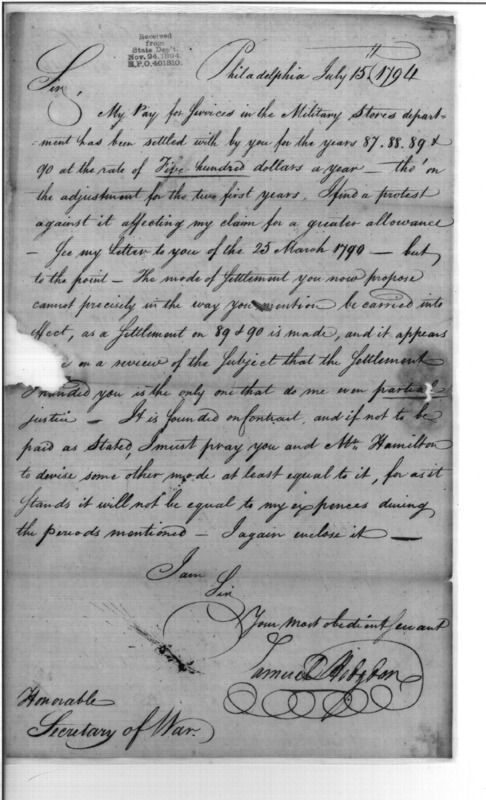 Received
from
State Dep't.
Nov. 24, 1894.
R.P.O. 401310.
Philadelphia July 15th 1794
Sir,
My Pay for Services in the Military Stores depart-
-ment has been settled with by you for the years 87. 88. 89 &
90 at the rate of Five hundred dollars a year — tho' on
the adjustment for the two first years, I find a protest
against it affecting my claim for a greater allowance
— See my Letter to you of the 25 March 1790 — but
to the point — The mode of Settlement you now propose
cannot precisely in the way you mention be carried into
effect, as a Settlement on 89 & 90 is made, and it appears
on a review of the Subject that the Settlement
I handed you is the only one that do me even partial
justice — It is founded on Contract, and if not to be
paid as Stated, I must pray you and Mr. Hamilton
to devise some other mode at least equal to it, for as it
stands it will not be equal to my expences during
the periods mentioned — I again enclose it —
I am
Sir
Your most obedient Servant
Samuel Hodgdon
Honorable
Secretary of War